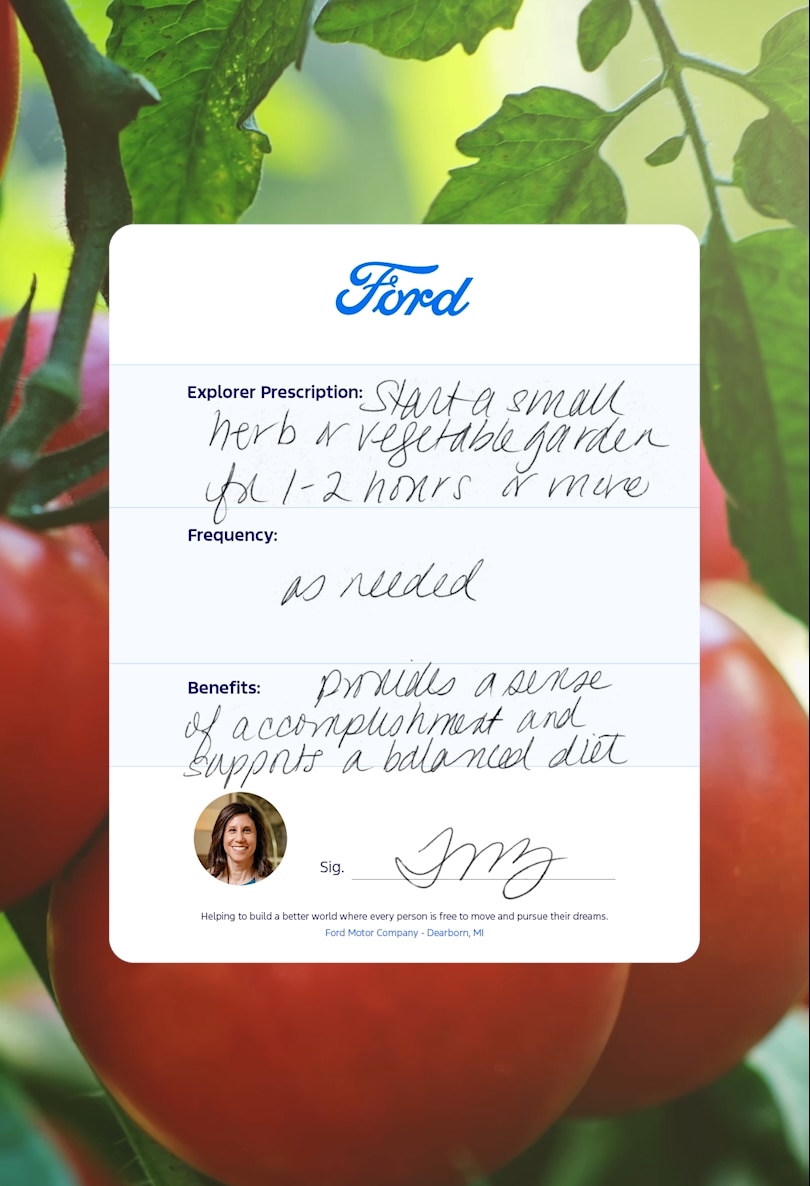 Ford
Explorer Prescription: Start a small
herb or vegetable garden
for 1-2 hours or more
Frequency:
as needed
Benefits: provides a sense
of accomplishment and
supports a balanced diet
Sig.
Helping to build a better world where every person is free to move and pursue their dreams.
Ford Motor Company - Dearborn, MI